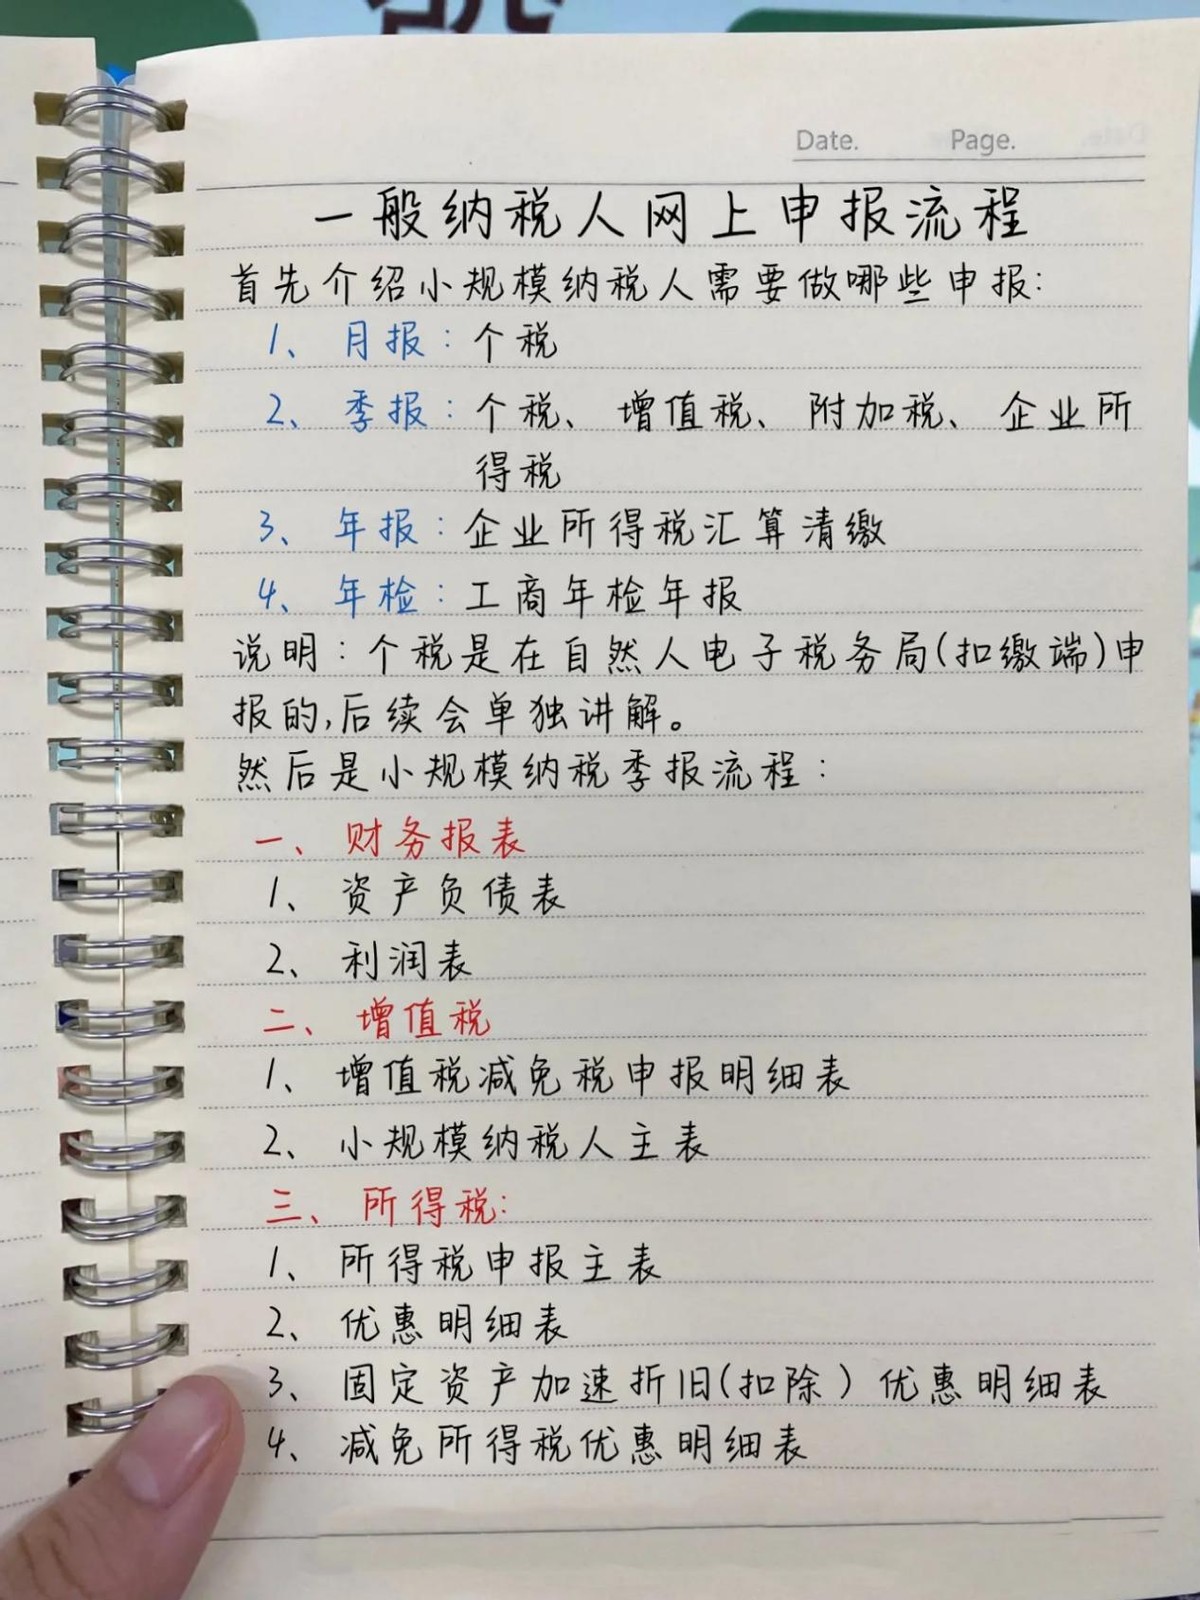 Date. Page.
一般纳税人网上申报流程
首先介绍小规模纳税人需要做哪些申报:
1、月报:个税
2、季报:个税、增值税、附加税、企业所
得税
3、年报:企业所得税汇算清缴
4、年检:工商年检年报
说明:个税是在自然人电子税务局(扣缴端)申
报的,后续会单独讲解。
然后是小规模纳税季报流程:
一、财务报表
1、资产负债表
2、利润表
二、增值税
1、增值税减免税申报明细表
2、小规模纳税人主表
三、所得税:
1、所得税申报主表
2、优惠明细表
3、固定资产加速折旧(扣除)优惠明细表
4、减免所得税优惠明细表